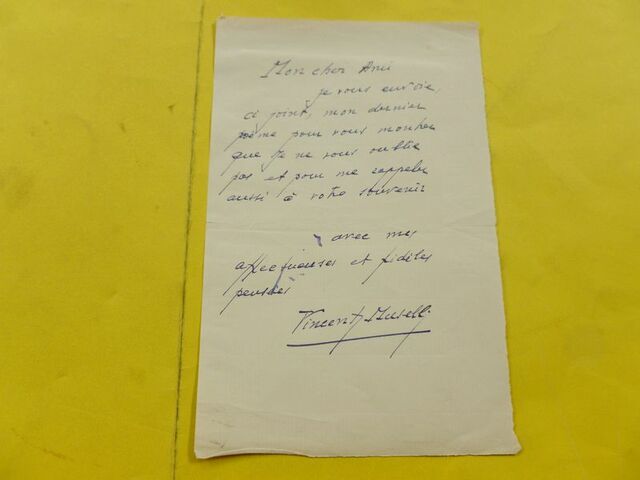 Mon cher Ami
je vous envoie,
ci joint, mon dernier
poème pour vous montrer
que je ne vous oublie
pas et pour me rappeler
aussi à votre souvenir
avec mes
affectueuses et fidèles
pensées
Vincent Muselli